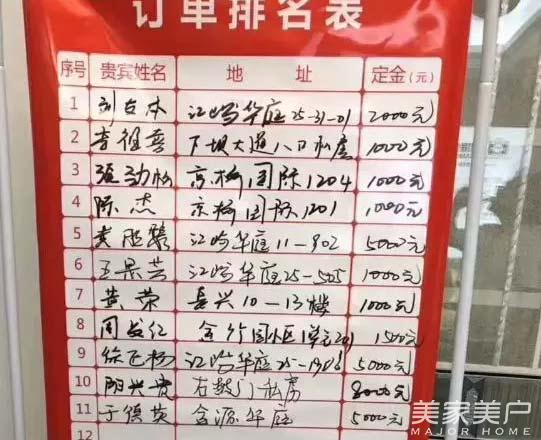 订单排名表
序号 贵宾姓名 地 址 定金(元)
1 刘女本 江屿华庭25-31-01 2000元
2 下坝大道八口私房 1000元
3 张劲松 京桥国际1204 1000元
4 陈杰 京桥国际1201 1000元
5 江屿华庭11-902 5000元
6 王景芸 江屿华庭25-505 1000元
7 黄荣 嘉兴10-13楼 1000元
8 周发红 金竹园小区1单元201 1500元
9 徐飞杨 江屿华庭25-1908 5000元
10 右鼓门私房 2000元
11 于德英 金源华庭 5000元
12
美家美户
MAJOR HOME